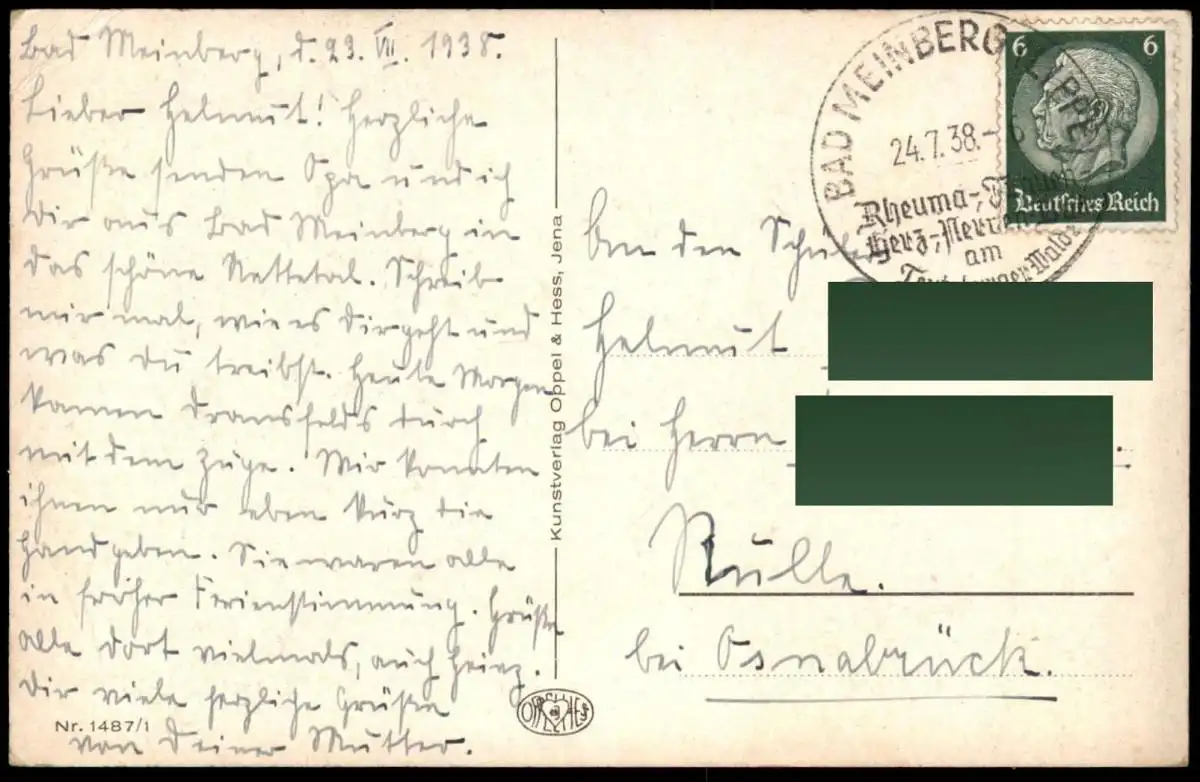 Bad Meinberg, d. 23. VII. 1938.
Lieber Helmut! Herzliche
Grüße senden Opa und ich
Dir aus Bad Meinberg in
das schöne Nettetal. Schreib
mir mal, wie es Dir geht und
was Du treibst. Heute Morgen
kamen Dransfelds durch
mit dem Zuge. Wir konnten
ihnen nur eben kurz die
Hand geben. Sie waren alle
in froher Ferienstimmung. Grüße
alle dort vielmals, auch Heinz.
Dir viele herzliche Grüße
von Deiner Mutter.
Nr. 1487/1
Kunstverlag Oppel & Hess, Jena
OPPEL HESS
BAD MEINBERG LIPPE
24.7.38.-
Rheuma-,
Herz-, Nerven
am
Teutoburger Walde
6 6
Deutsches Reich
An den Schüler
Helmut
bei Herrn
Rulle.
bei Osnabrück.